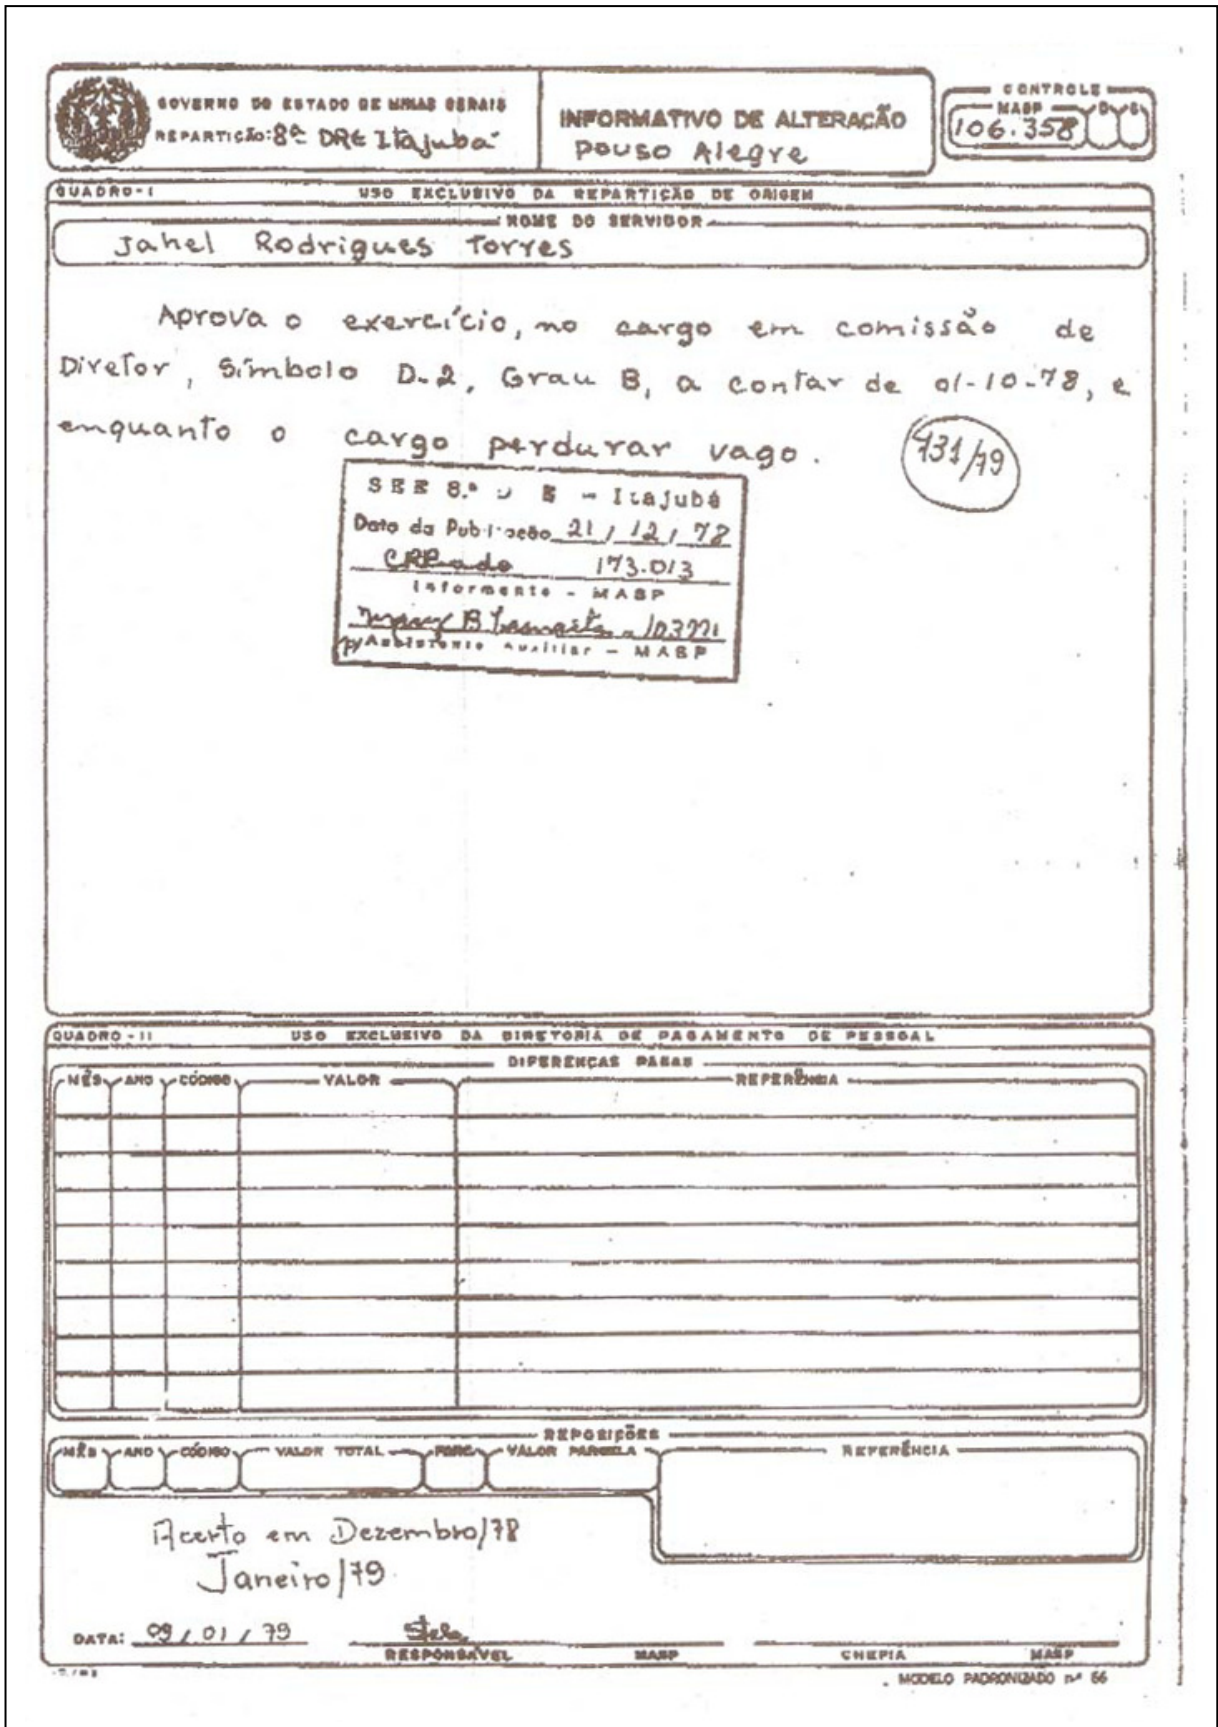 GOVERNO DO ESTADO DE MINAS GERAIS
REPARTIÇÃO: 8ª DRE Itajubá
INFORMATIVO DE ALTERAÇÃO
Pouso Alegre
CONTROLE
MASP D C
106.358
QUADRO - I USO EXCLUSIVO DA REPARTIÇÃO DE ORIGEM
NOME DO SERVIDOR
Jahel Rodrigues Torres
Aprova o exercício, no cargo em comissão de
Diretor, Símbolo D-2, Grau B, a contar de 01-10-78, e
enquanto o cargo perdurar vago.
931/79
SEE 8.ª D E - Itajubá
Data da Publicação 21 / 12 / 78
173.013
Informante - MASP
p/ Assistente Auxiliar - MASP
QUADRO - II USO EXCLUSIVO DA DIRETORIA DE PAGAMENTO DE PESSOAL
DIFERENÇAS PAGAS
MÊS ANO CÓDIGO VALOR REFERÊNCIA
REPOSIÇÕES
MÊS ANO CÓDIGO VALOR TOTAL PARC. VALOR PARCELA REFERÊNCIA
Acerto em Dezembro/78
Janeiro/79
DATA: 09 / 01 / 79 Stela
RESPONSÁVEL MASP CHEFIA MASP
MODELO PADRONIZADO nº 66